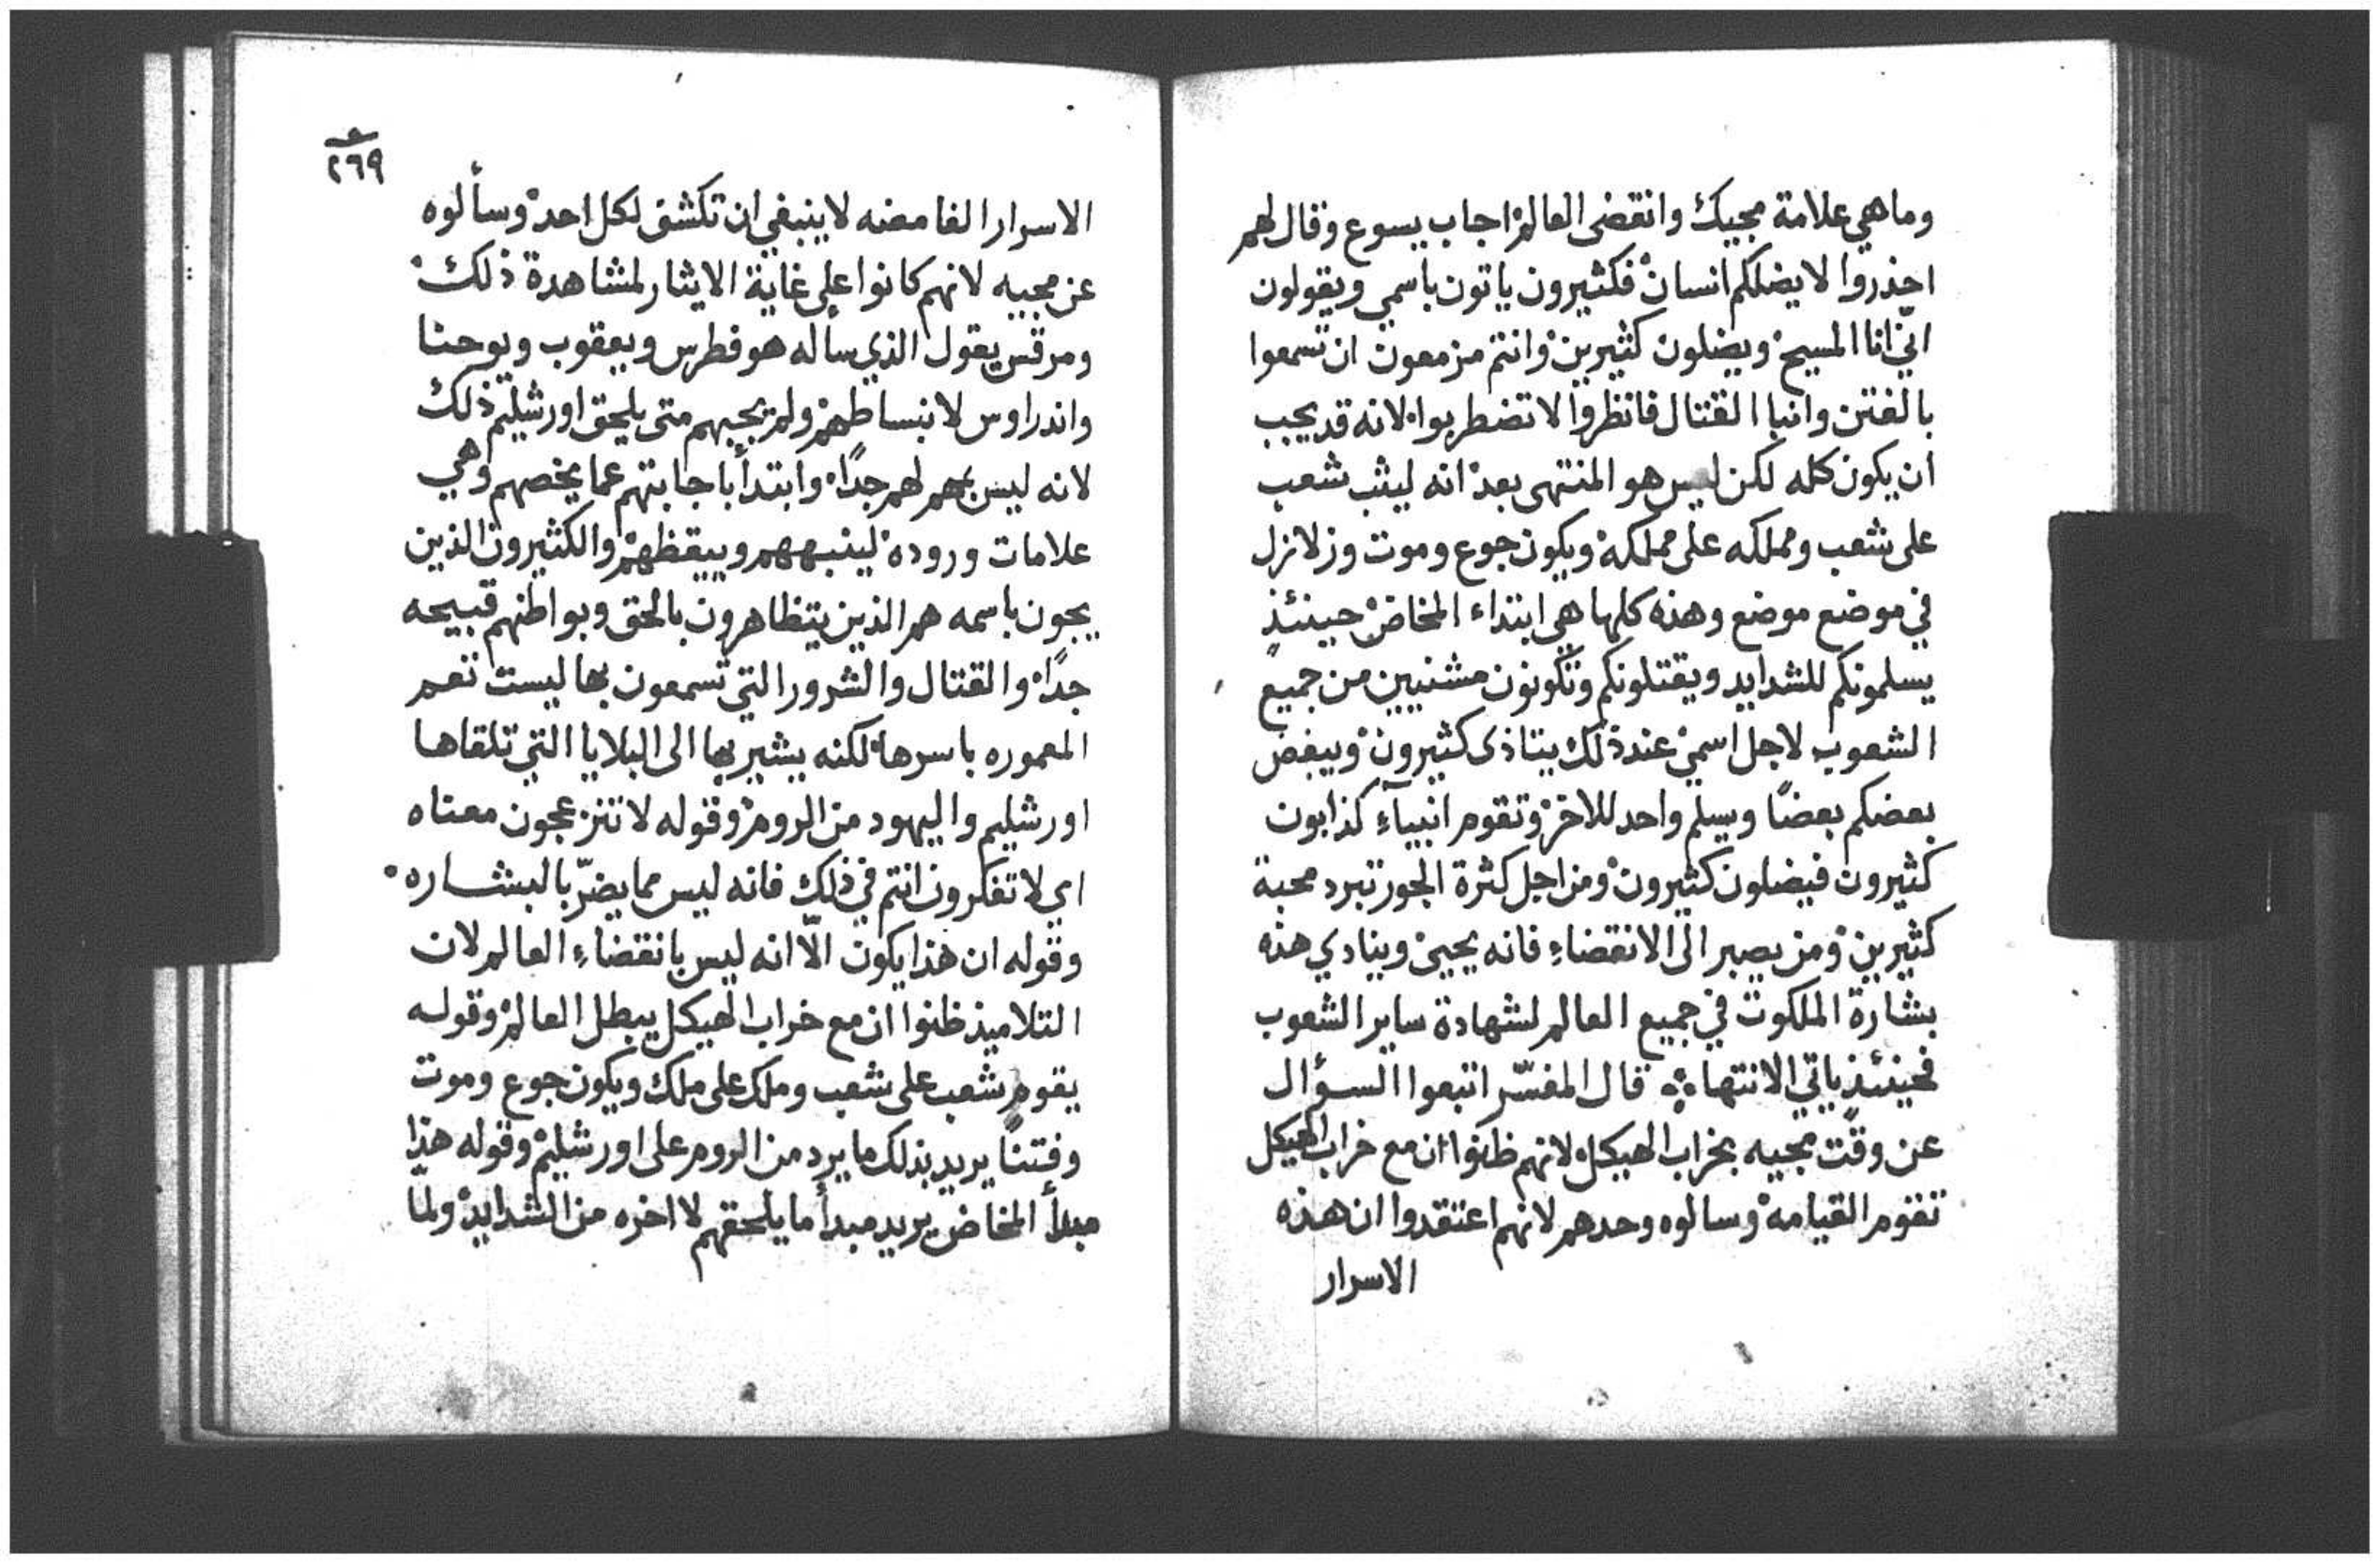 وما هي علامة مجيك وانقضى العالم اجاب يسوع وقال لهم
احذروا لا يضلكم انسان فكثيرون ياتون باسمي ويقولون
انّي انا المسيح ويضلون كثيرين وانتم مزمعون ان تسمعوا
بالفتن وانبا القتال فانظروا لا تضطربوا لانه قد يجب
ان يكون كله لكن ليس هو المنتهى بعد انه ليثب شعب
على شعب ومملكه على مملكة ويكون جوع وموت وزلازل
في موضع موضع وهذه كلها هي ابتداء المخاض حينئذٍ
يسلمونكم للشدايد ويقتلونكم وتكونون مشنيين من جميع
الشعوب لاجل اسمي عند ذلك يتاذى كثيرون ويبغض
بعضكم بعضًا ويسلم واحد للاخر وتقوم انبيآء كذابون
كثيرون فيضلون كثيرون ومن اجل كثرة الجور تبرد محبة
كثيرين ومن يصبر الى الانقضاء فانه يحيى وينادي هذه
بشارة الملكوت في جميع العالم لشهادة ساير الشعوب
فحينئذ ياتي الانتهاء قال المفسّر اتبعوا السؤال
عن وقت مجيه بخراب الهيكل لانهم ظنوا ان مع خراب الهيكل
تقوم القيامه وسالوه وحدهم لانهم اعتقدوا ان هذه
الاسرار
٢٦٩
الاسرار الغامضه لا ينبغي ان تكشف لكل احد وسألوه
عن مجيه لانهم كانوا على غاية الايثار لمشاهدة ذلك
ومرقس يقول الذي ساله هو فطرس ويعقوب ويوحنا
واندراوس لانبساطهم ولم يجبهم متى يلحق اورشليم ذلك
لانه ليس بمهم لهم جدًا وابتدأ باجابتهم عما يخصهم وهي
علامات وروده لينبههم وييقظهم والكثيرون الذين
يجون باسمه هم الذين يتظاهرون بالحق وبواطنهم قبيحه
جدًا والقتال والشرور التي تسمعون بها ليست تعم
المعموره باسرها لكنه يشير بها الى البلايا التي تلقاها
اورشليم واليهود من الروم وقوله لا تنزعجون معناه
اي لا تفكرون انتم في ذلك فانه ليس مما يضرّ بالبشاره
وقوله ان هذا يكون الّا انه ليس بانقضاءِ العالم لان
التلاميذ ظنوا ان مع خراب الهيكل يبطل العالم وقوله
يقوم شعب على شعب وملك على ملك ويكون جوع وموت
وفتنًا يريد بذلك ما يرد من الروم على اورشليم وقوله هذا
مبدأ المخاض يريد مبدأ ما يلحقهم لا اخره من الشدايد ولما